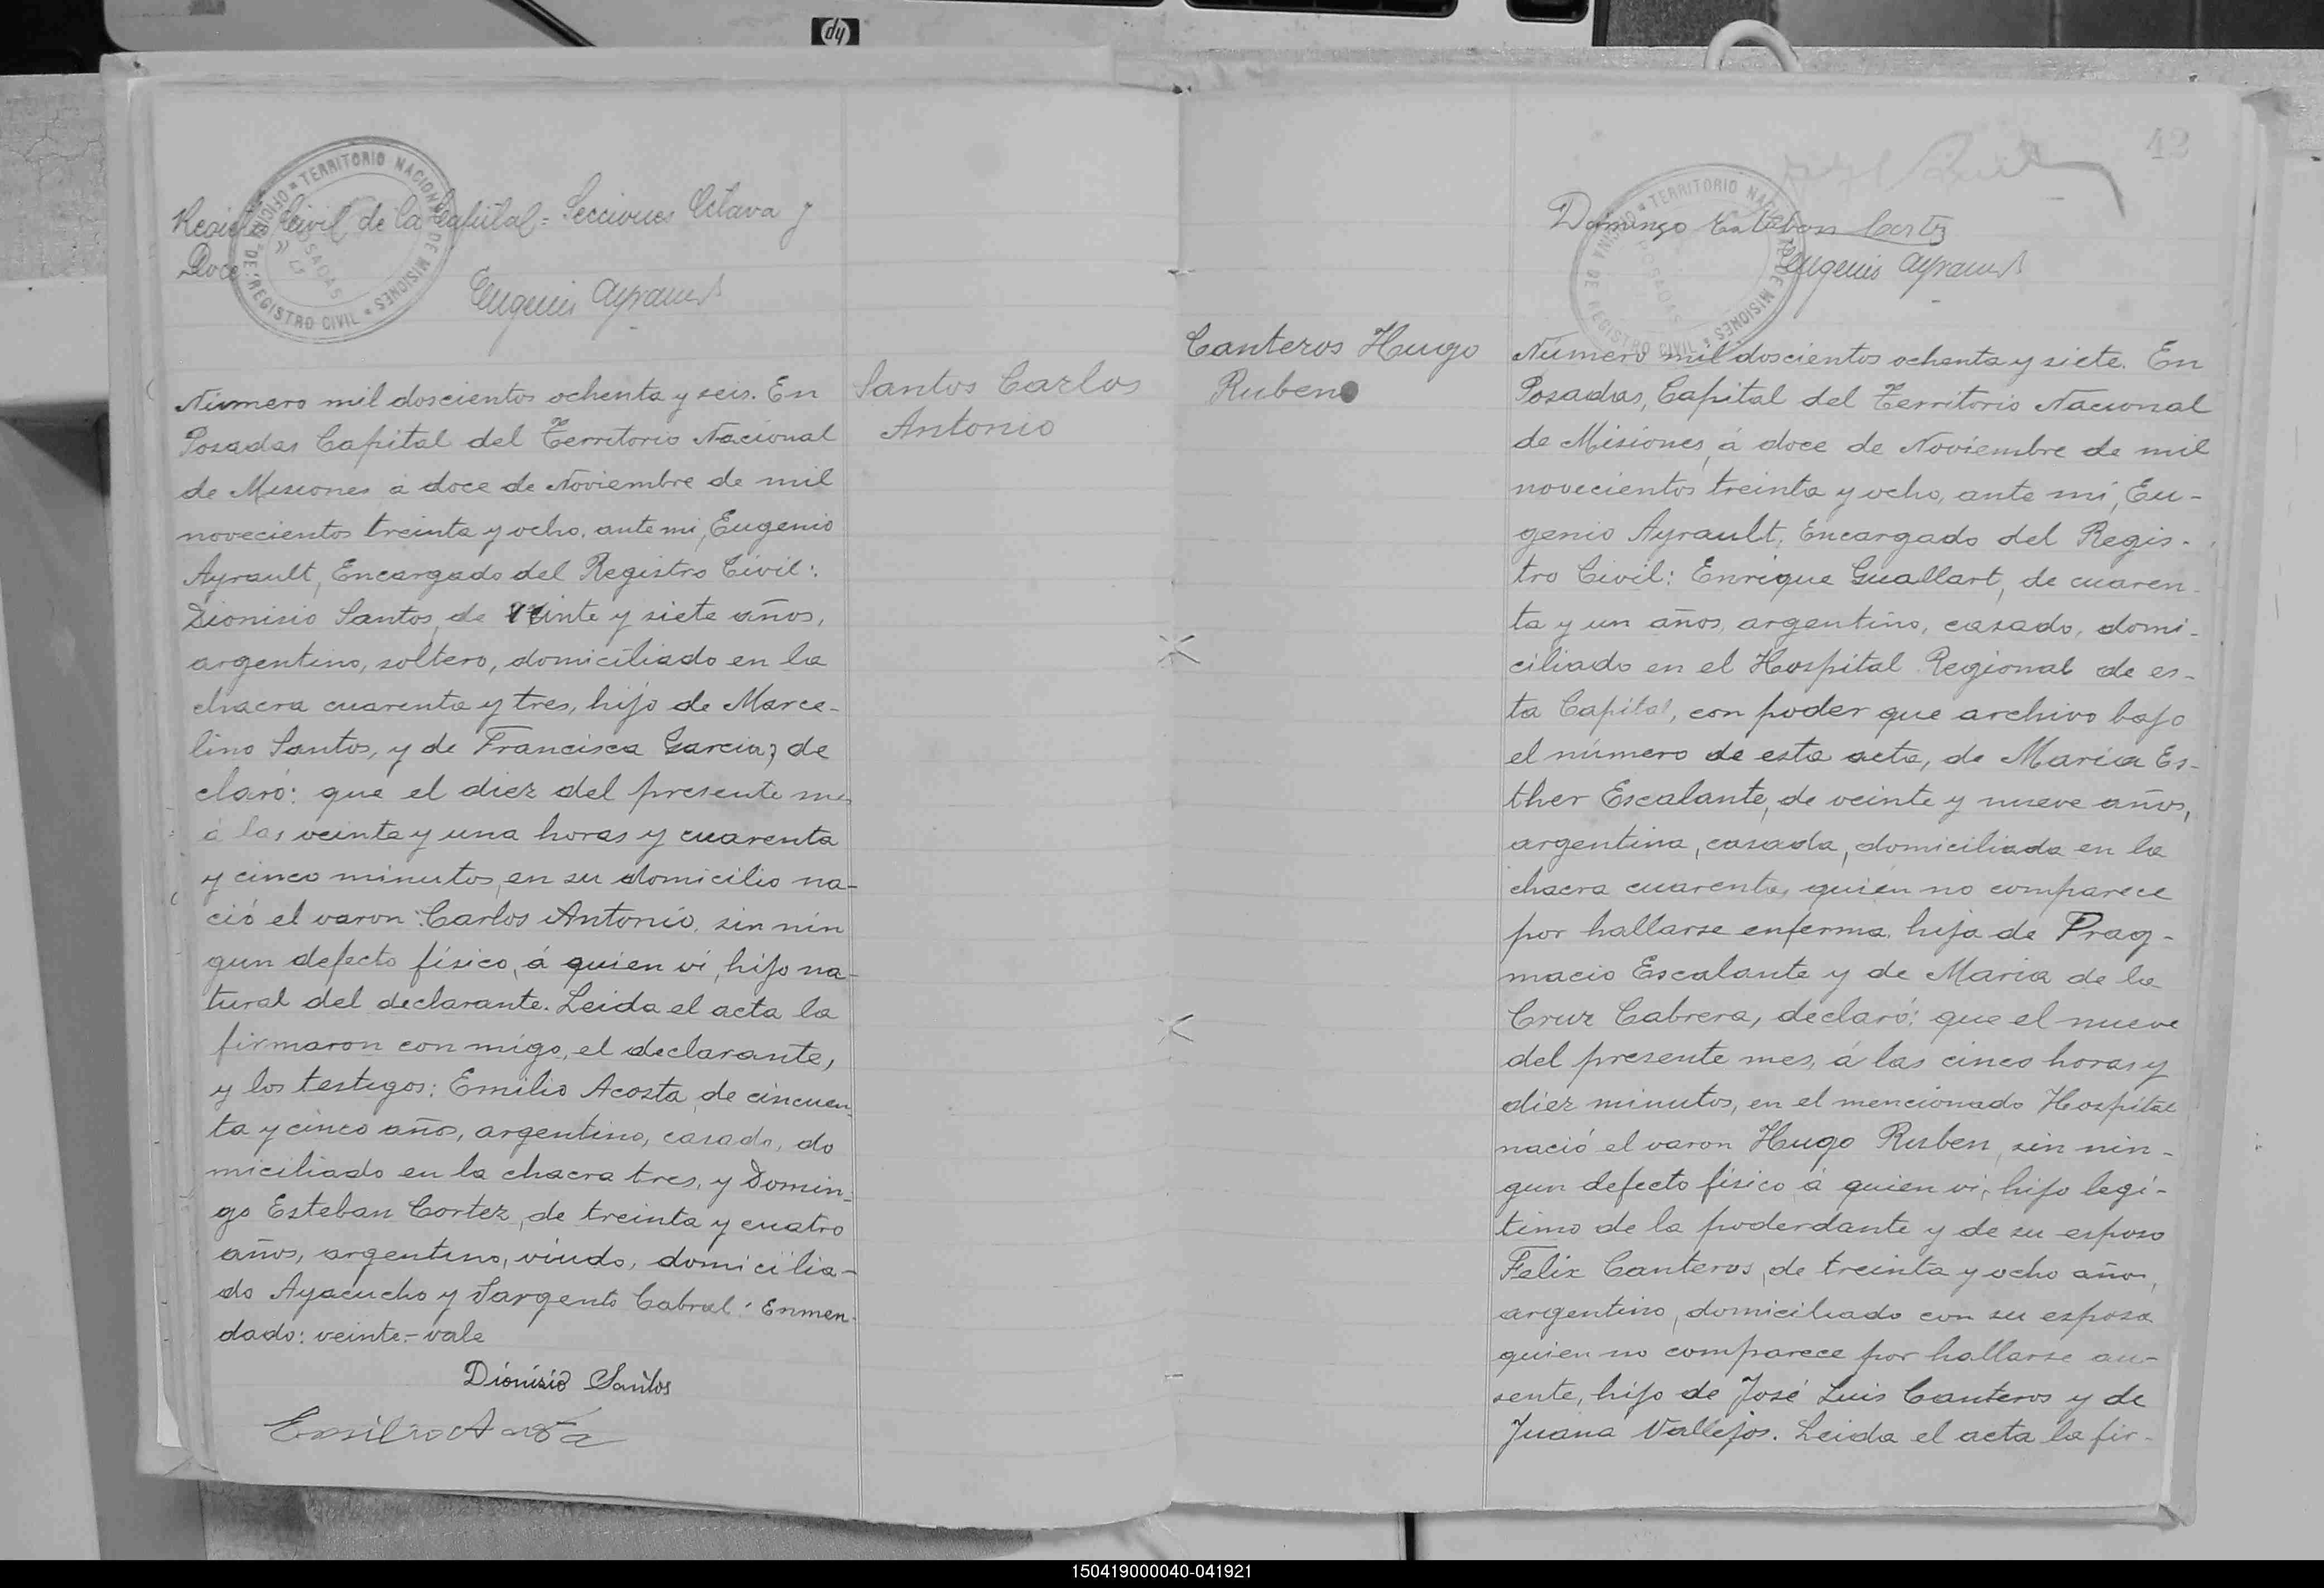 hp
Registro Civil de la Capital = Secciones Octava y
Doce
Eugenio Ayrault
OFICINA DE REGISTRO CIVIL
TERRITORIO NACIONAL DE MISIONES
POSADAS
Santos Carlos
Antonio
Número mil doscientos ochenta y seis. En
Posadas Capital del Territorio Nacional
de Misiones á doce de Noviembre de mil
novecientos treinta y ocho, ante mi, Eugenio
Ayrault, Encargado del Registro Civil:
Dionisio Santos, de veinte y siete años,
argentino, soltero, domiciliado en la
chacra cuarenta y tres, hijo de Marce-
lino Santos, y de Francisca Garcia, de
claró: que el diez del presente mes
á las veinte y una horas y cuarenta
y cinco minutos, en su domicilio na-
ció el varon Carlos Antonio, sin nin
gun defecto físico, á quien vi, hijo na-
tural del declarante. Leida el acta la
firmaron con migo, el declarante,
y los testigos: Emilio Acosta, de cincuen
ta y cinco años, argentino, casado, do
miciliado en la chacra tres, y Domin-
go Esteban Cortez, de treinta y cuatro
años, argentino, viudo, domicilia-
do Ayacucho y Sargento Cabral. Enmen-
dado: veinte - vale
Dionisio Santos
Emilio Acosta
42
Domingo Esteban Cortez
Eugenio Ayrault
OFICINA DE REGISTRO CIVIL
TERRITORIO NACIONAL DE MISIONES
POSADAS
Canteros Hugo
Ruben
Número mil doscientos ochenta y siete. En
Posadas, Capital del Territorio Nacional
de Misiones, á doce de Noviembre de mil
novecientos treinta y ocho, ante mi, Eu-
genio Ayrault, Encargado del Regis-
tro Civil: Enrique Guallart, de cuaren-
ta y un años, argentino, casado, domi-
ciliado en el Hospital Regional de es-
ta Capital, con poder que archivo bajo
el número de esta acta, de Maria Es-
ther Escalante, de veinte y nueve años,
argentina, casada, domiciliada en la
chacra cuarenta, quien no comparece
por hallarse enferma, hija de Prag-
macio Escalante y de Maria de la
Cruz Cabrera, declaró: que el nueve
del presente mes, á las cinco horas y
diez minutos, en el mencionado Hospital
nació el varon Hugo Ruben, sin nin-
gun defecto físico á quien vi, hijo legí-
timo de la poderdante y de su esposo
Felix Canteros, de treinta y ocho años,
argentino, domiciliado con su esposa
quien no comparece por hallarse au-
sente, hijo de José Luis Canteros y de
Juana Vallejos. Leida el acta la fir-
150419000040-041921